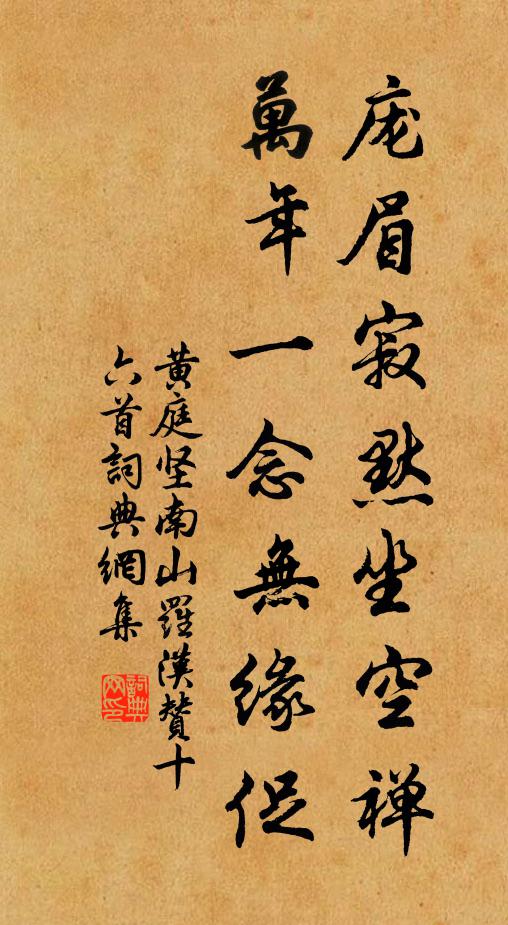 庞眉寂默坐空禅
萬年一念無緣促
黄庭坚南山羅漢贊十
六首詞典網集
詞典網印